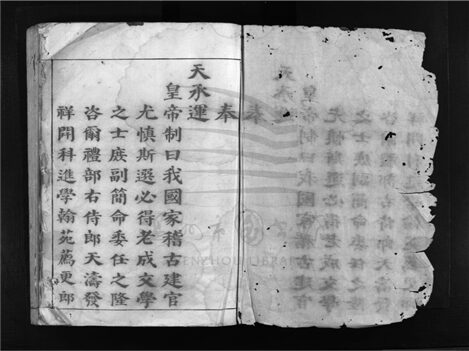 奉
天承運
皇帝制曰我國家稽古建官
尤慎斯選必得老成文學
之士庶副簡命委任之隆
咨爾禮部右侍郎天濤發
祥開科進學翰苑薦更郎